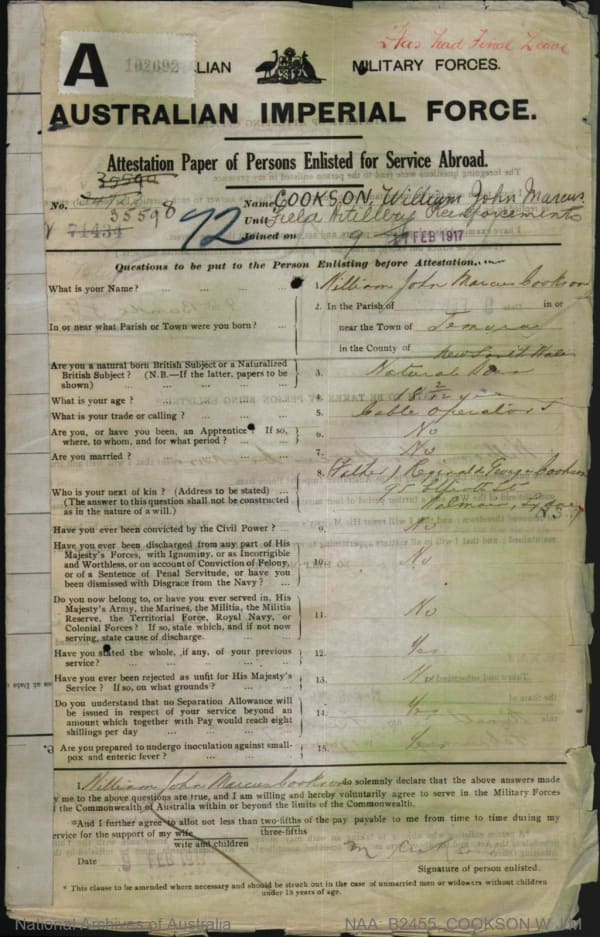 Has had Final Leave
A 102692
ALIAN MILITARY FORCES.
AUSTRALIAN IMPERIAL FORCE.
Attestation Paper of Persons Enlisted for Service Abroad.
No. 35598
71434
72
Name COOKSON, William John Marcus
Unit Field Artillery Reinforcements
Joined on FEB 1917
Questions to be put to the Person Enlisting before Attestation.
What is your Name? ... William John Marcus Cookson
In or near what Parish or Town were you born? ...
2. In the Parish of in or
near the Town of Temora
in the County of New South Wales
Are you a natural born British Subject or a Naturalized
British Subject? (N.B.—If the latter, papers to be
shown) 3. Natural Born
What is your age? 4. 18 2/12 yrs
What is your trade or calling? 5. Cable Operator
Are you, or have you been, an Apprentice? If so,
where, to whom, and for what period? 6. No
Are you married? 7. No
Who is your next of kin? (Address to be stated)
(The answer to this question shall not be constructed
as in the nature of a will.)
8. (Father) Reginald George Cookson
95
Balmain, Sydney
Have you ever been convicted by the Civil Power? 9. No
Have you ever been discharged from any part of His
Majesty's Forces, with Ignominy, or as Incorrigible
and Worthless, or on account of Conviction of Felony,
or of a Sentence of Penal Servitude, or have you
been dismissed with Disgrace from the Navy? 10. No
Do you now belong to, or have you ever served in, His
Majesty's Army, the Marines, the Militia, the Militia
Reserve, the Territorial Force, Royal Navy, or
Colonial Forces? If so, state which, and if not now
serving, state cause of discharge. 11. No
Have you stated the whole, if any, of your previous
service? 12. Yes
Have you ever been rejected as unfit for His Majesty's
Service? If so, on what grounds? 13. No
Do you understand that no Separation Allowance will
be issued in respect of your service beyond an
amount which together with Pay would reach eight
shillings per day 14. Yes
Are you prepared to undergo inoculation against small-
pox and enteric fever? 15. Yes
I, William John Marcus Cookson do solemnly declare that the above answers made
y me to the above questions are true, and I am willing and hereby voluntarily agree to serve in the Military Forces
f the Commonwealth of Australia within or beyond the limits of the Commonwealth.
*And I further agree to allot not less than two-fifths of the pay payable to me from time to time during my
three-fifths
ervice for the support of my wife
wife and children
Date FEB 1917
Signature of person enlisted.
* This clause to be amended where necessary and should be struck out in the case of unmarried men or widowers without children
under 18 years of age.
National Archives of Australia NAA: B2455, COOKSON W J M